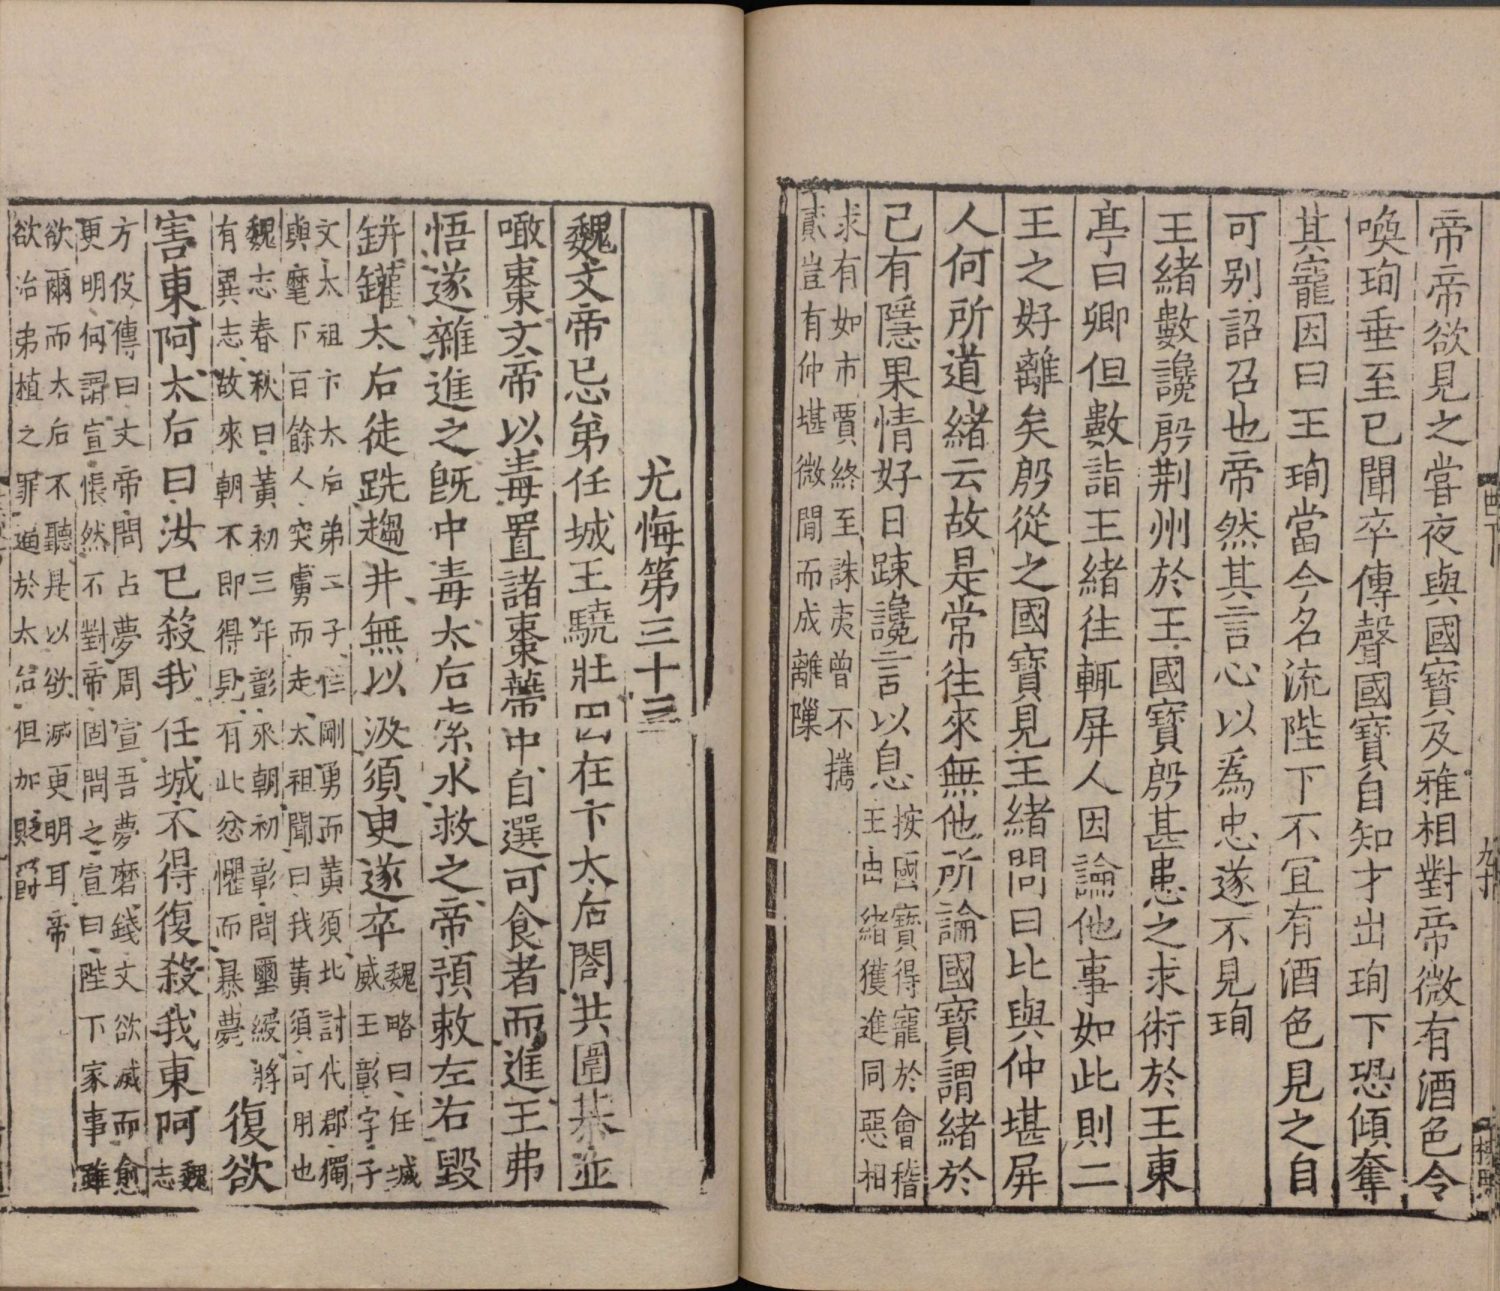 帝帝欲見之嘗夜與國寶及雅相對帝微有酒色令
喚珣垂至已聞卒傳聲國寶自知才出珣下恐傾奪
其寵因曰王珣當今名流陛下不宜有酒色見之自
可别詔召也帝然其言心以爲忠遂不見珣
王緒數讒殷荆州於王國寶殷甚患之求術於王東
亭曰卿但數詣王緒往輒屏人因論他事如此則二
王之好離矣殷從之國寶見王緒問曰比與仲堪屏
人何所道緒云故是常往來無他所論國寶謂緒於
己有隱果情好日踈讒言以息
按國寶得寵於會稽
王由緒獲進同惡相
求有如市賈終至誅夷曾不攜
貳豈有仲堪微閒而成離隟
尤悔第三十三
魏文帝忌弟任城王驍壯因在卞太后閤共圍棊並
噉棗文帝以毒置諸棗蔕中自選可食者而進王弗
悟遂雜進之旣中毒太后索水救之帝預敕左右毀
缾罐太后徒跣趨井無以汲須臾遂卒
魏略曰任城
威王彰字子
文太祖卞太后弟二子性剛勇而黃須北討代郡獨
與麾下百餘人突虜而走太祖聞曰我黃須可用也
魏志春秋曰黃初三年彰來朝初彰問璽綬將
有異志故來朝不即得見有此忿懼而暴夢
復欲
害東阿太后曰汝已殺我任城不得復殺我東阿
魏
志
方伎傳曰文帝問占夢周宣吾夢磨錢文欲滅而愈
更明何謂宣悵然不對帝固問之宣曰陛下家事雖
欲爾而太后不聽是以欲滅更明耳帝
欲治弟植之罪逼於太后但加貶爵